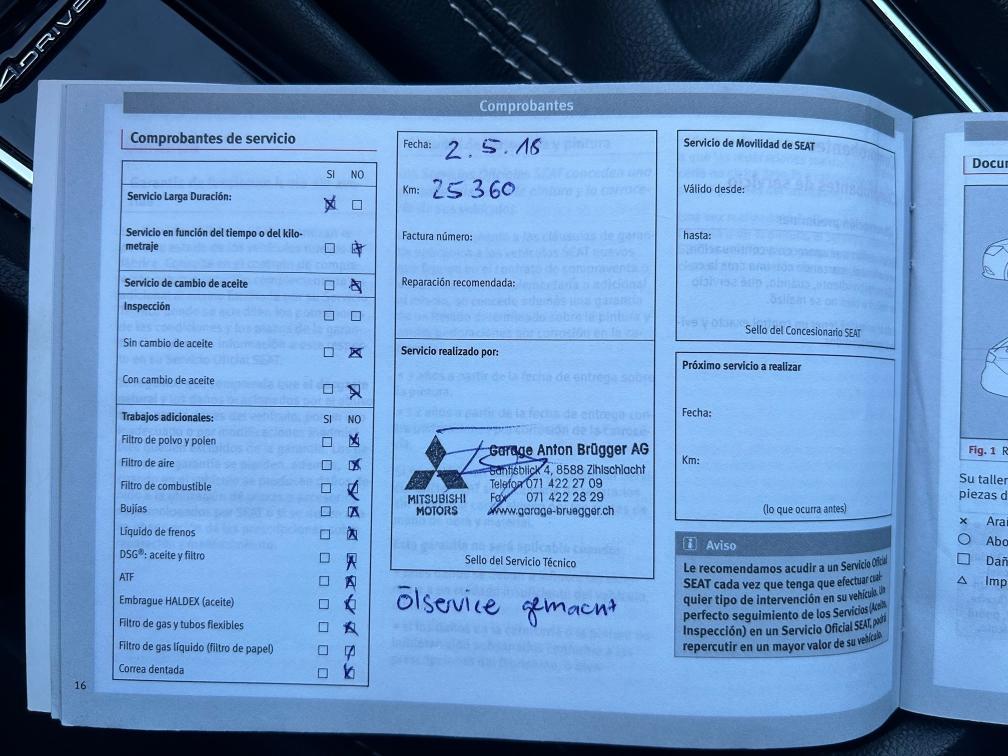 4DRIVE
Comprobantes
Comprobantes de servicio
SI NO
Servicio Larga Duración:
Servicio en función del tiempo o del kilo-
metraje
Servicio de cambio de aceite
Inspección
Sin cambio de aceite
Con cambio de aceite
Trabajos adicionales: SI NO
Filtro de polvo y polen
Filtro de aire
Filtro de combustible
Bujías
Líquido de frenos
DSG®: aceite y filtro
ATF
Embrague HALDEX (aceite)
Filtro de gas y tubos flexibles
Filtro de gas líquido (filtro de papel)
Correa dentada
16
Fecha: 2.5.18
Km: 25360
Factura número:
Reparación recomendada:
Servicio realizado por:
MITSUBISHI
MOTORS
Garage Anton Brügger AG
Santisblick 4, 8588 Zihlschlacht
Telefon 071 422 27 09
Fax 071 422 28 29
www.garage-bruegger.ch
Sello del Servicio Técnico
Ölservice gemacht
Servicio de Movilidad de SEAT
Válido desde:
hasta:
Sello del Concesionario SEAT
Próximo servicio a realizar
Fecha:
Km:
(lo que ocurra antes)
i Aviso
Le recomendamos acudir a un Servicio Oficial
SEAT cada vez que tenga que efectuar cual-
quier tipo de intervención en su vehículo. Un
perfecto seguimiento de los Servicios (Aceite,
Inspección) en un Servicio Oficial SEAT, podrá
repercutir en un mayor valor de su vehículo.
Docur
Fig. 1 R
Su taller
piezas d
× Arai
Abo
Dañ
Imp